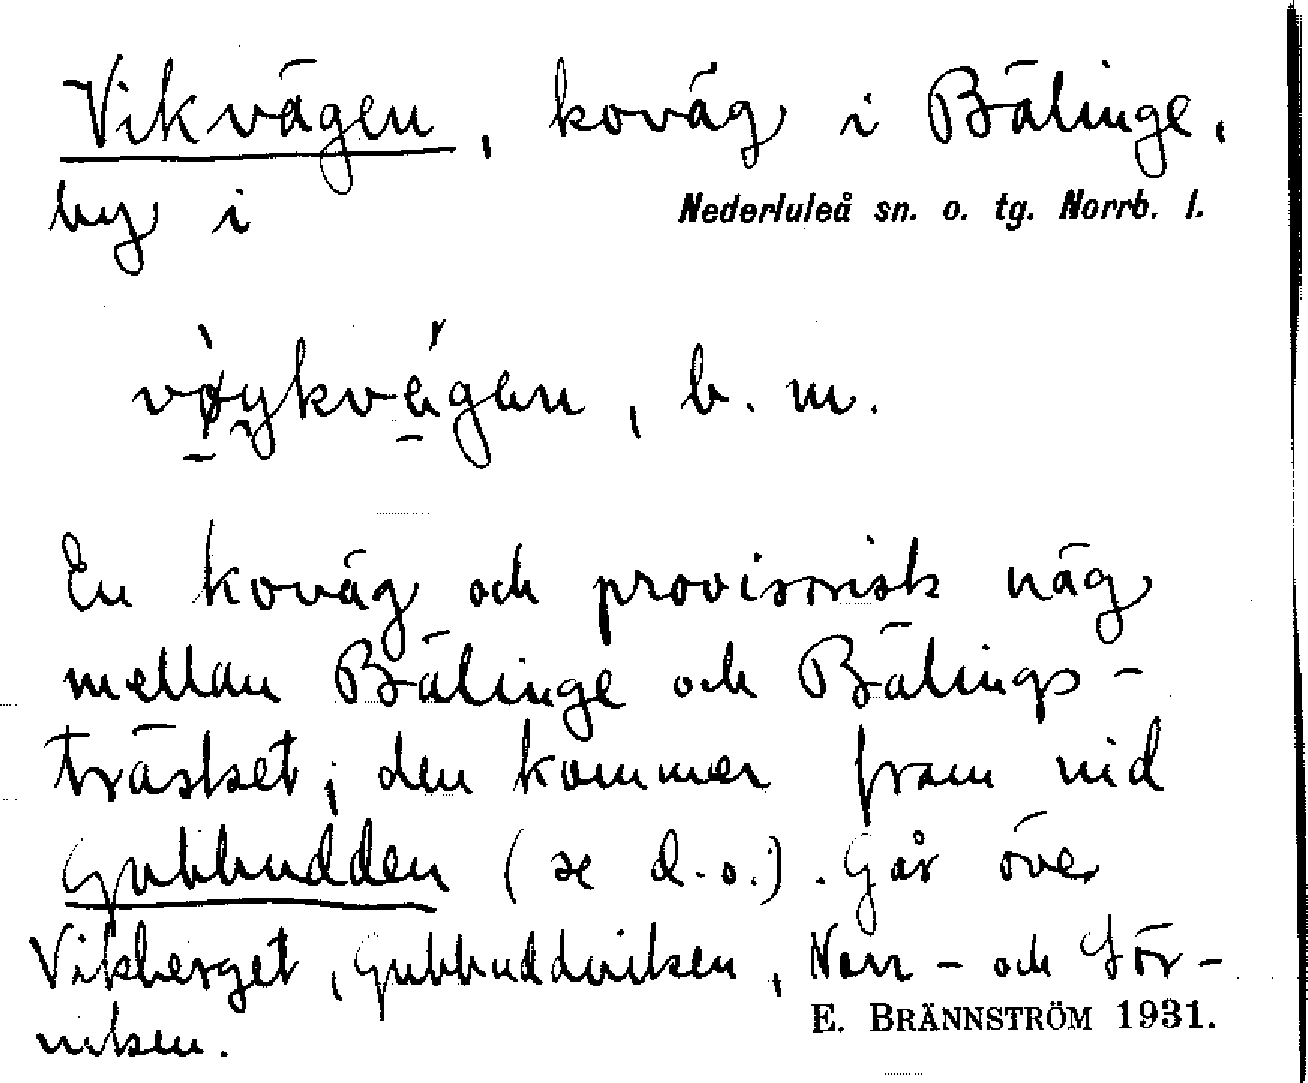 Vikvägen, koväg i Bälinge,
by i Nederluleå sn. o. tg. Norrb. l.
vø̀ykvä́gen, b. m.
En koväg och provisorisk väg
mellan Bälinge och Bälings-
träsket; den kommer fram vid
Gubbudden (se d.o.). Går över
Vikberget, Gubbuddviken, Norr- och Sör-
viken.
E. BRÄNNSTRÖM 1931.